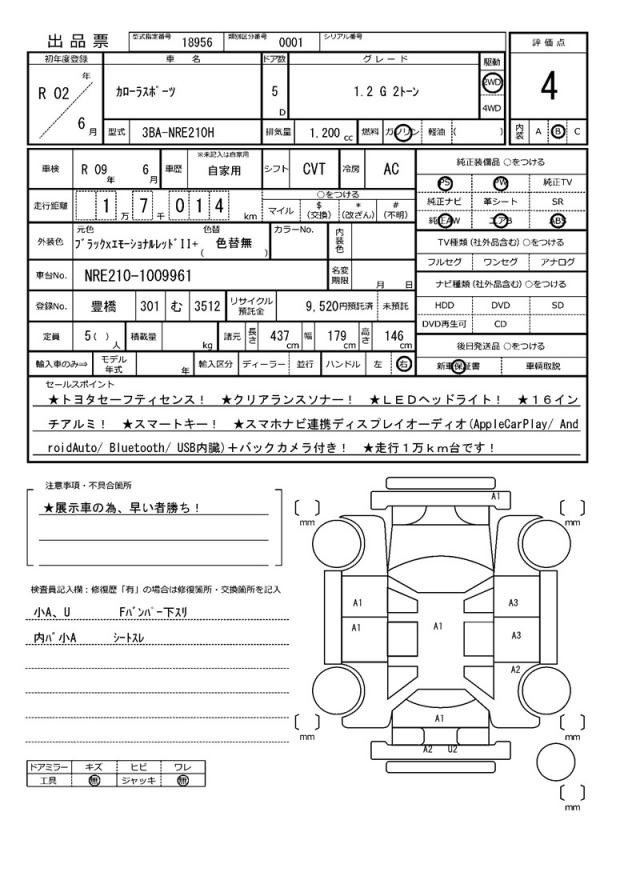 出品票 型式指定番号 18956 類別区分番号 0001 シリアル番号
評価点
4
内装 A B C
初年度登録 車名 ドア数 グレード 駆動
R 02 年 6 月 カローラスポーツ 5 D 1.2 G 2トーン 2WD 4WD
型式 3BA-NRE210H 排気量 1.200 cc 燃料 ガソリン 軽油 ( )
車検 R 09 年 6 月 車歴 ※未記入は自家用 自家用 シフト CVT 冷房 AC
走行距離 1 万 7 千 0 1 4 km ○をつける マイル $ (交換) * (改ざん) # (不明)
外装色 元色 ブラックxエモーショナルレッドII+ 色替 ( 色替無 ) カラーNo. 内装色
車台No. NRE210-1009961 名変期限 月 日
登録No. 豊橋 301 む 3512 リサイクル預託金 9,520円預託済 未預託
定員 5( ) 人 積載量 kg 諸元 長さ 437 cm 幅 179 cm 高さ 146 cm
輸入車のみ⇒ モデル年式 年 輸入区分 ディーラー 並行 ハンドル 左 右
純正装備品 ○をつける
PS PW 純正TV
純正ナビ 革シート SR
純正AW エアB ABS
TV種類 (社外品含む) ○をつける
フルセグ ワンセグ アナログ
ナビ種類 (社外品含む) ○をつける
HDD DVD SD
DVD再生可 CD
後日発送品 ○をつける
新車保証書 車輌取説
セールスポイント
★トヨタセーフティセンス! ★クリアランスソナー! ★LEDヘッドライト! ★16イン
チアルミ! ★スマートキー! ★スマホナビ連携ディスプレイオーディオ(AppleCarPlay/ And
roidAuto/ Bluetooth/ USB内臓)+バックカメラ付き! ★走行1万km台です!
注意事項・不具合箇所
★展示車の為、早い者勝ち!
検査員記入欄:修復歴「有」の場合は修復箇所・交換箇所を記入
小A、U Fバンパー下スリ
内バ小A シートスレ
ドアミラー キズ ヒビ ワレ
工具 無 ジャッキ 無
A1
mm mm
A1 A3
A1 A1 A3
A2
A1
mm mm
A2 U2
mm